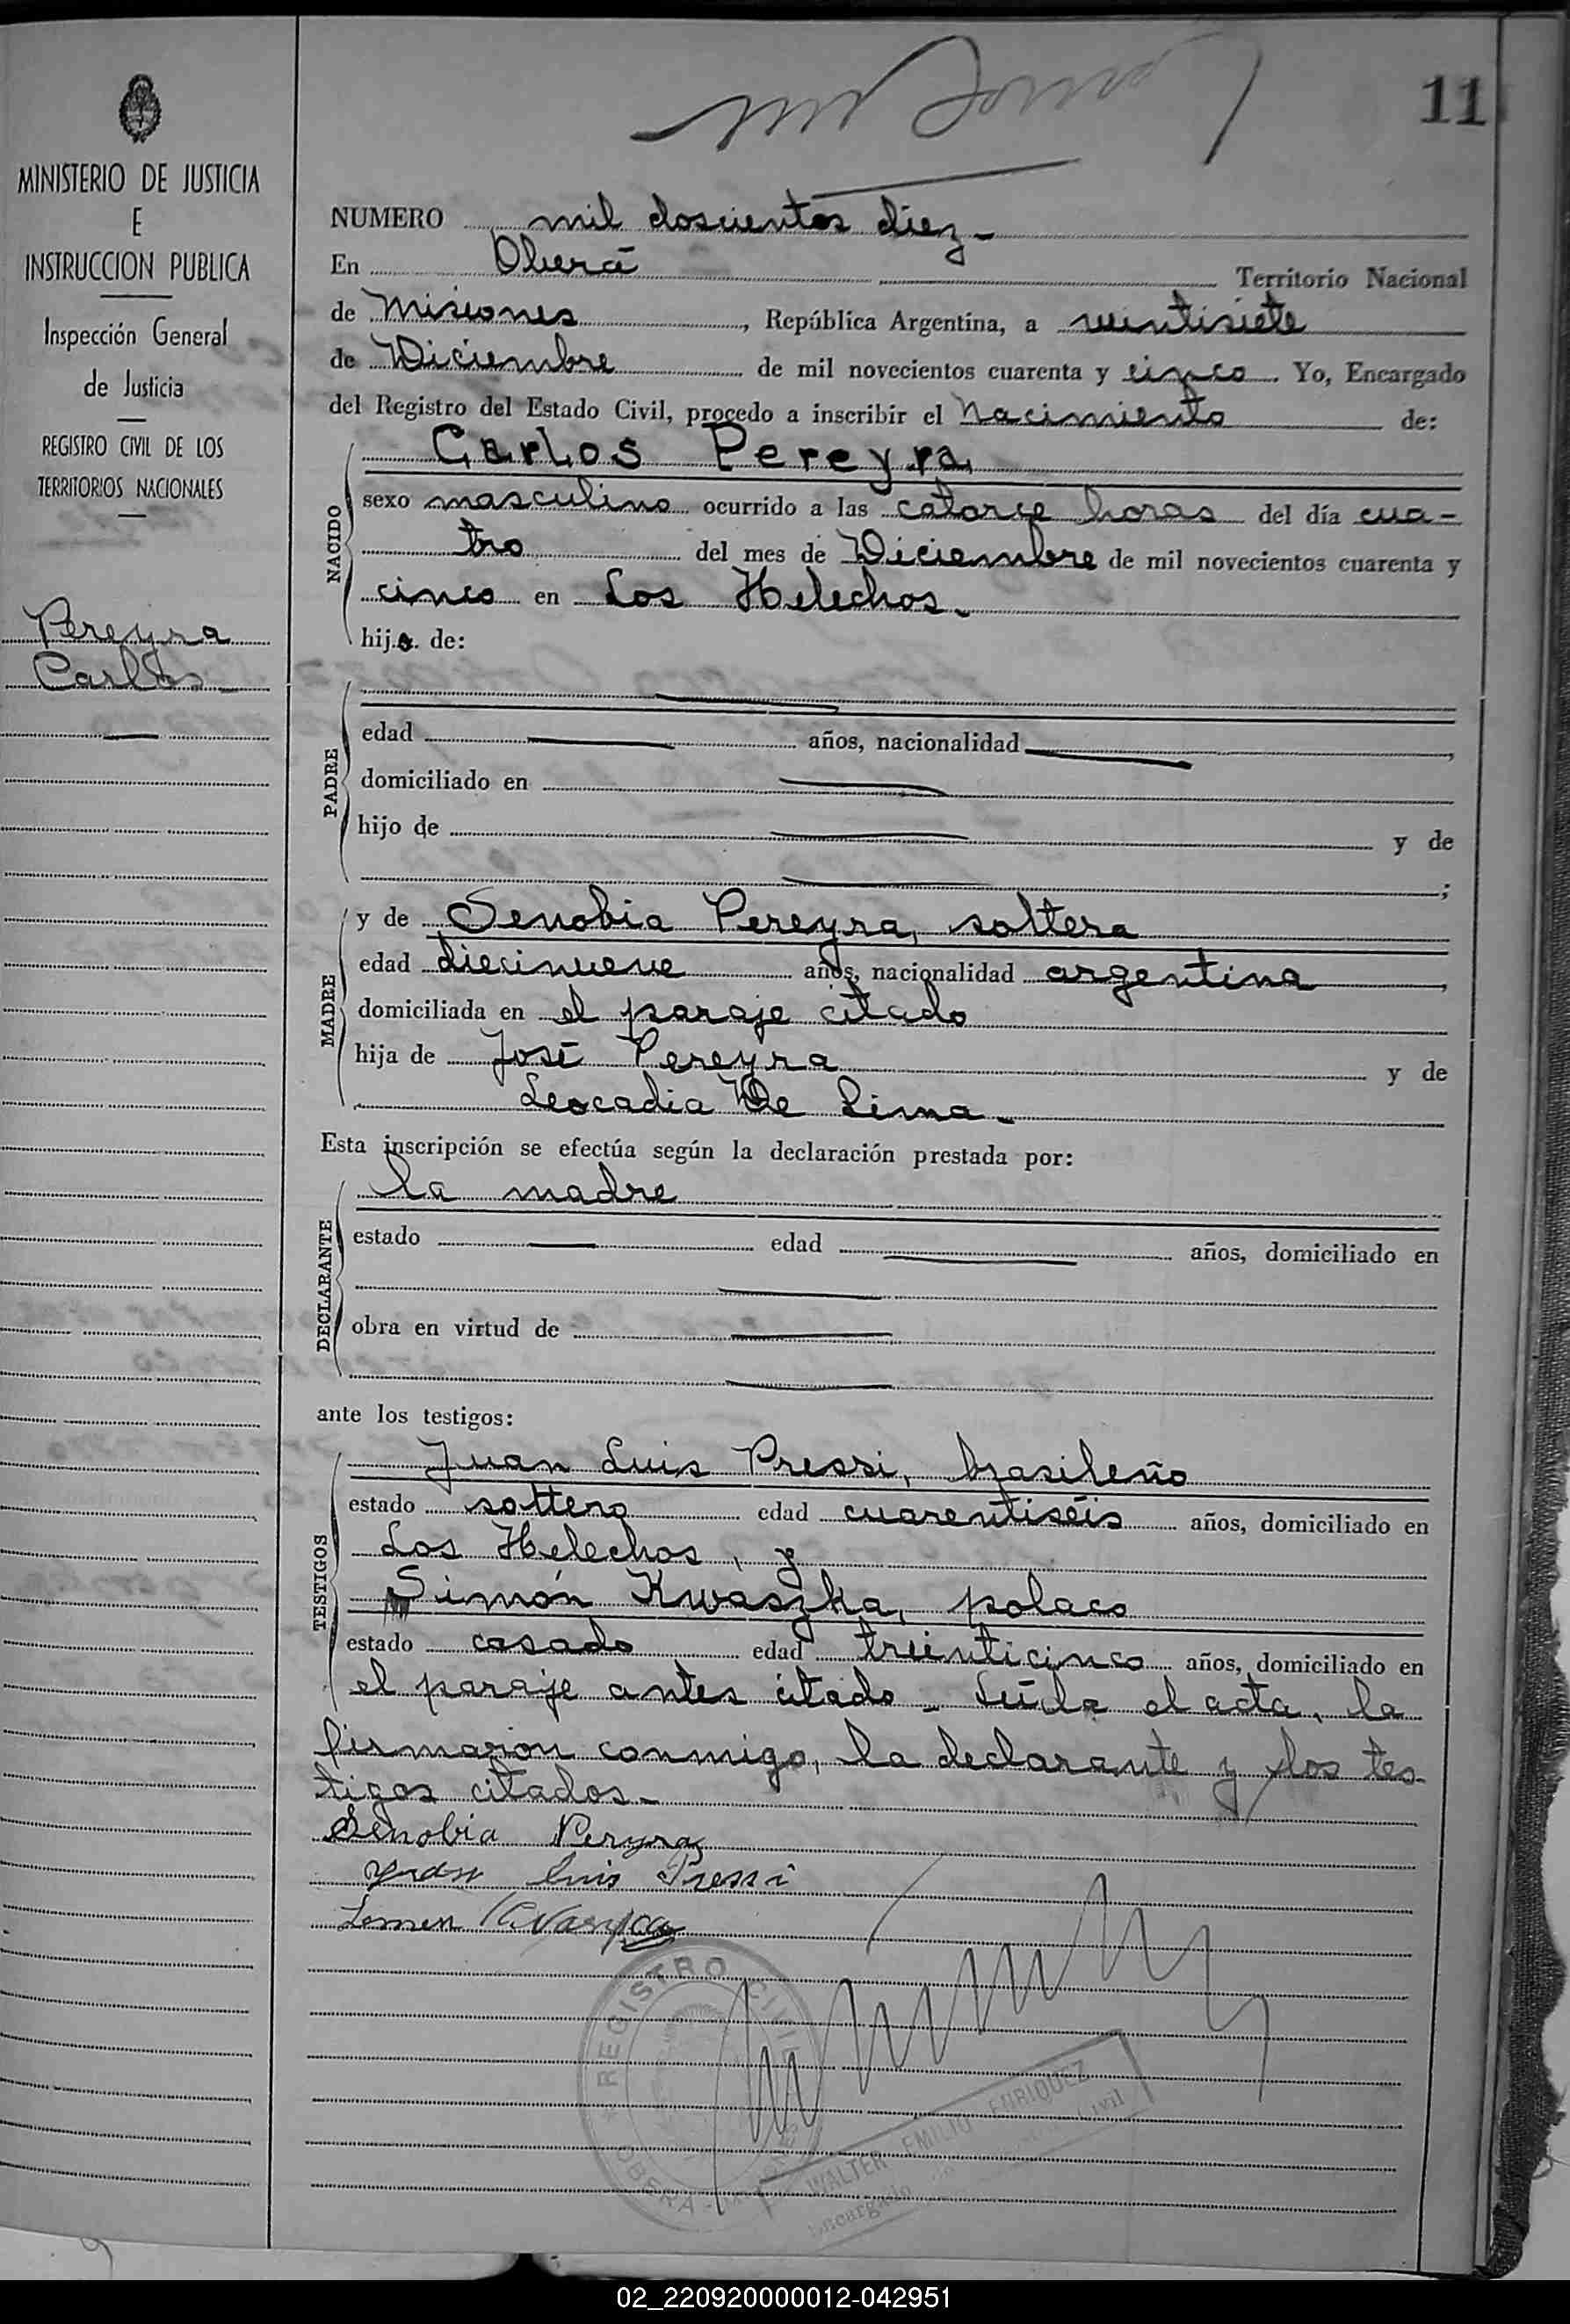 11
MINISTERIO DE JUSTICIA
E
INSTRUCCION PUBLICA
Inspección General
de Justicia
REGISTRO CIVIL DE LOS
TERRITORIOS NACIONALES
Pereyra
Carlos
NUMERO mil doscientos diez.-
En Oberá Territorio Nacional
de Misiones, República Argentina, a veintisiete
de Diciembre de mil novecientos cuarenta y cinco. Yo, Encargado
del Registro del Estado Civil, procedo a inscribir el Nacimiento de:
NACIDO
Carlos Pereyra,
sexo masculino ocurrido a las catorce horas del día cua-
tro del mes de Diciembre de mil novecientos cuarenta y
cinco en Los Helechos.-
hijo de:
PADRE
edad años, nacionalidad,
domiciliado en
hijo de y de
;
MADRE
y de Senobia Pereyra, soltera
edad diecinueve años, nacionalidad argentina,
domiciliada en el paraje citado
hija de José Pereyra y de
Leocadia De Lima.-
Esta inscripción se efectúa según la declaración prestada por:
DECLARANTE
la madre
estado edad años, domiciliado en
obra en virtud de
ante los testigos:
TESTIGOS
Juan Luis Pressi, brasileño
estado soltero edad cuarentiséis años, domiciliado en
Los Helechos, y
Simón Kwaszka, polaco
estado casado edad treinticinco años, domiciliado en
el paraje antes citado.- Leída el acta, la
firmaron conmigo, la declarante y los tes-
tigos citados.-
Senobia Peryra
Juan Luis Pressi
REGISTRO CIVIL
OBERA
WALTER EMILIO ENRIQUEZ
Encargado Civil
02_220920000012-042951